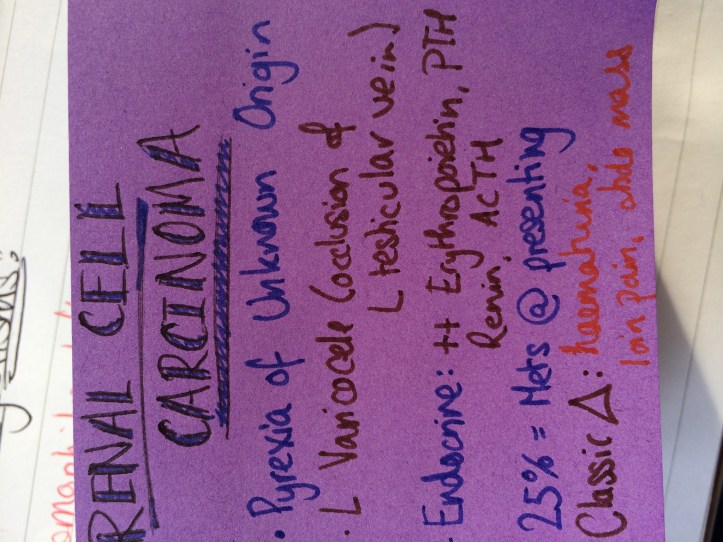 RENAL CELL
CARCINOMA
• Pyrexia of Unknown Origin
• L Varicocele (occlusion of
L testicular vein)
- Endocrine: ++ Erythropoietin, PTH
Renin, ACTH
25% = Mets @ presenting
Classic Δ: haematuria,
loin pain, abdo mass